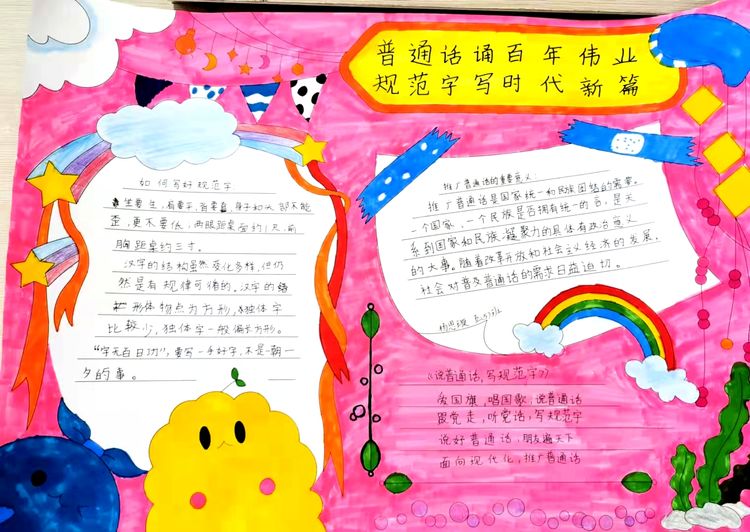 普通话诵百年伟业
规范字写时代新篇
如何写好规范字
坐要坐，有要子，首要直，身子和头都不能
歪，更不要低，两眼距桌面约1尺，前
胸距桌约三寸。
汉字的结构虽然变化多样，但仍
然是有规律可循的。汉字的
形体物点为方形，独体字
比较少，独体字一般偏长方形。
"字无百日功"，要写一手好字，不是一朝一
夕的事。
推广普通话的重要意义：
推广普通话是国家统一和民族团结的需要。
一个国家，一个民族是否拥有统一的言，是关
系到国家和民族凝聚力的具体有政治意义
的大事。随着改革开放和社会主义经济的发展，
社会对普及普通话的需求日益迫切。
《说普通话，写规范字》
爱国旗，唱国歌，说普通话
跟党走，听党话，写规范字
说好普通话，朋友遍天下
面向现代化，推广普通话